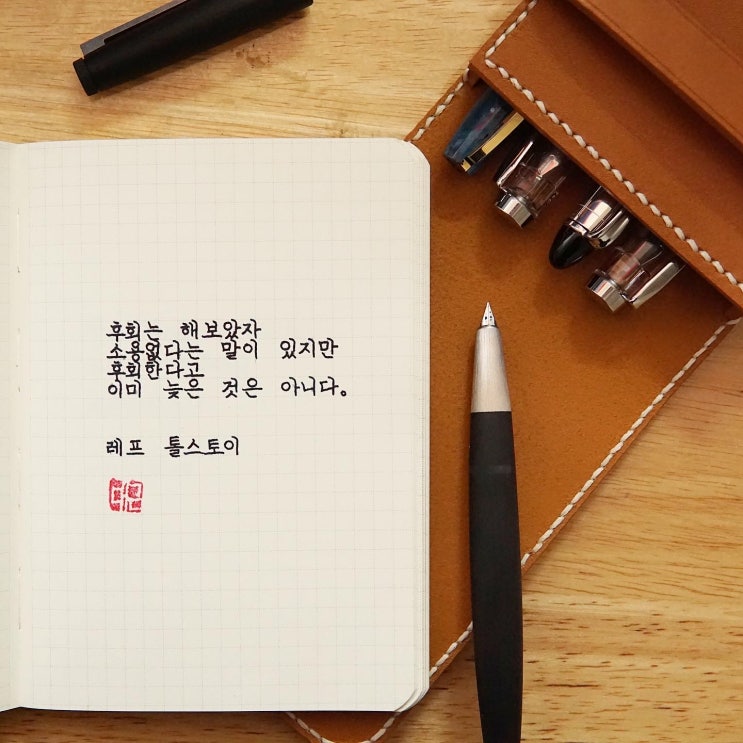 후회는 해보았자
소용없다는 말이 있지만
후회한다고
이미 늦은 것은 아니다.
레프 톨스토이